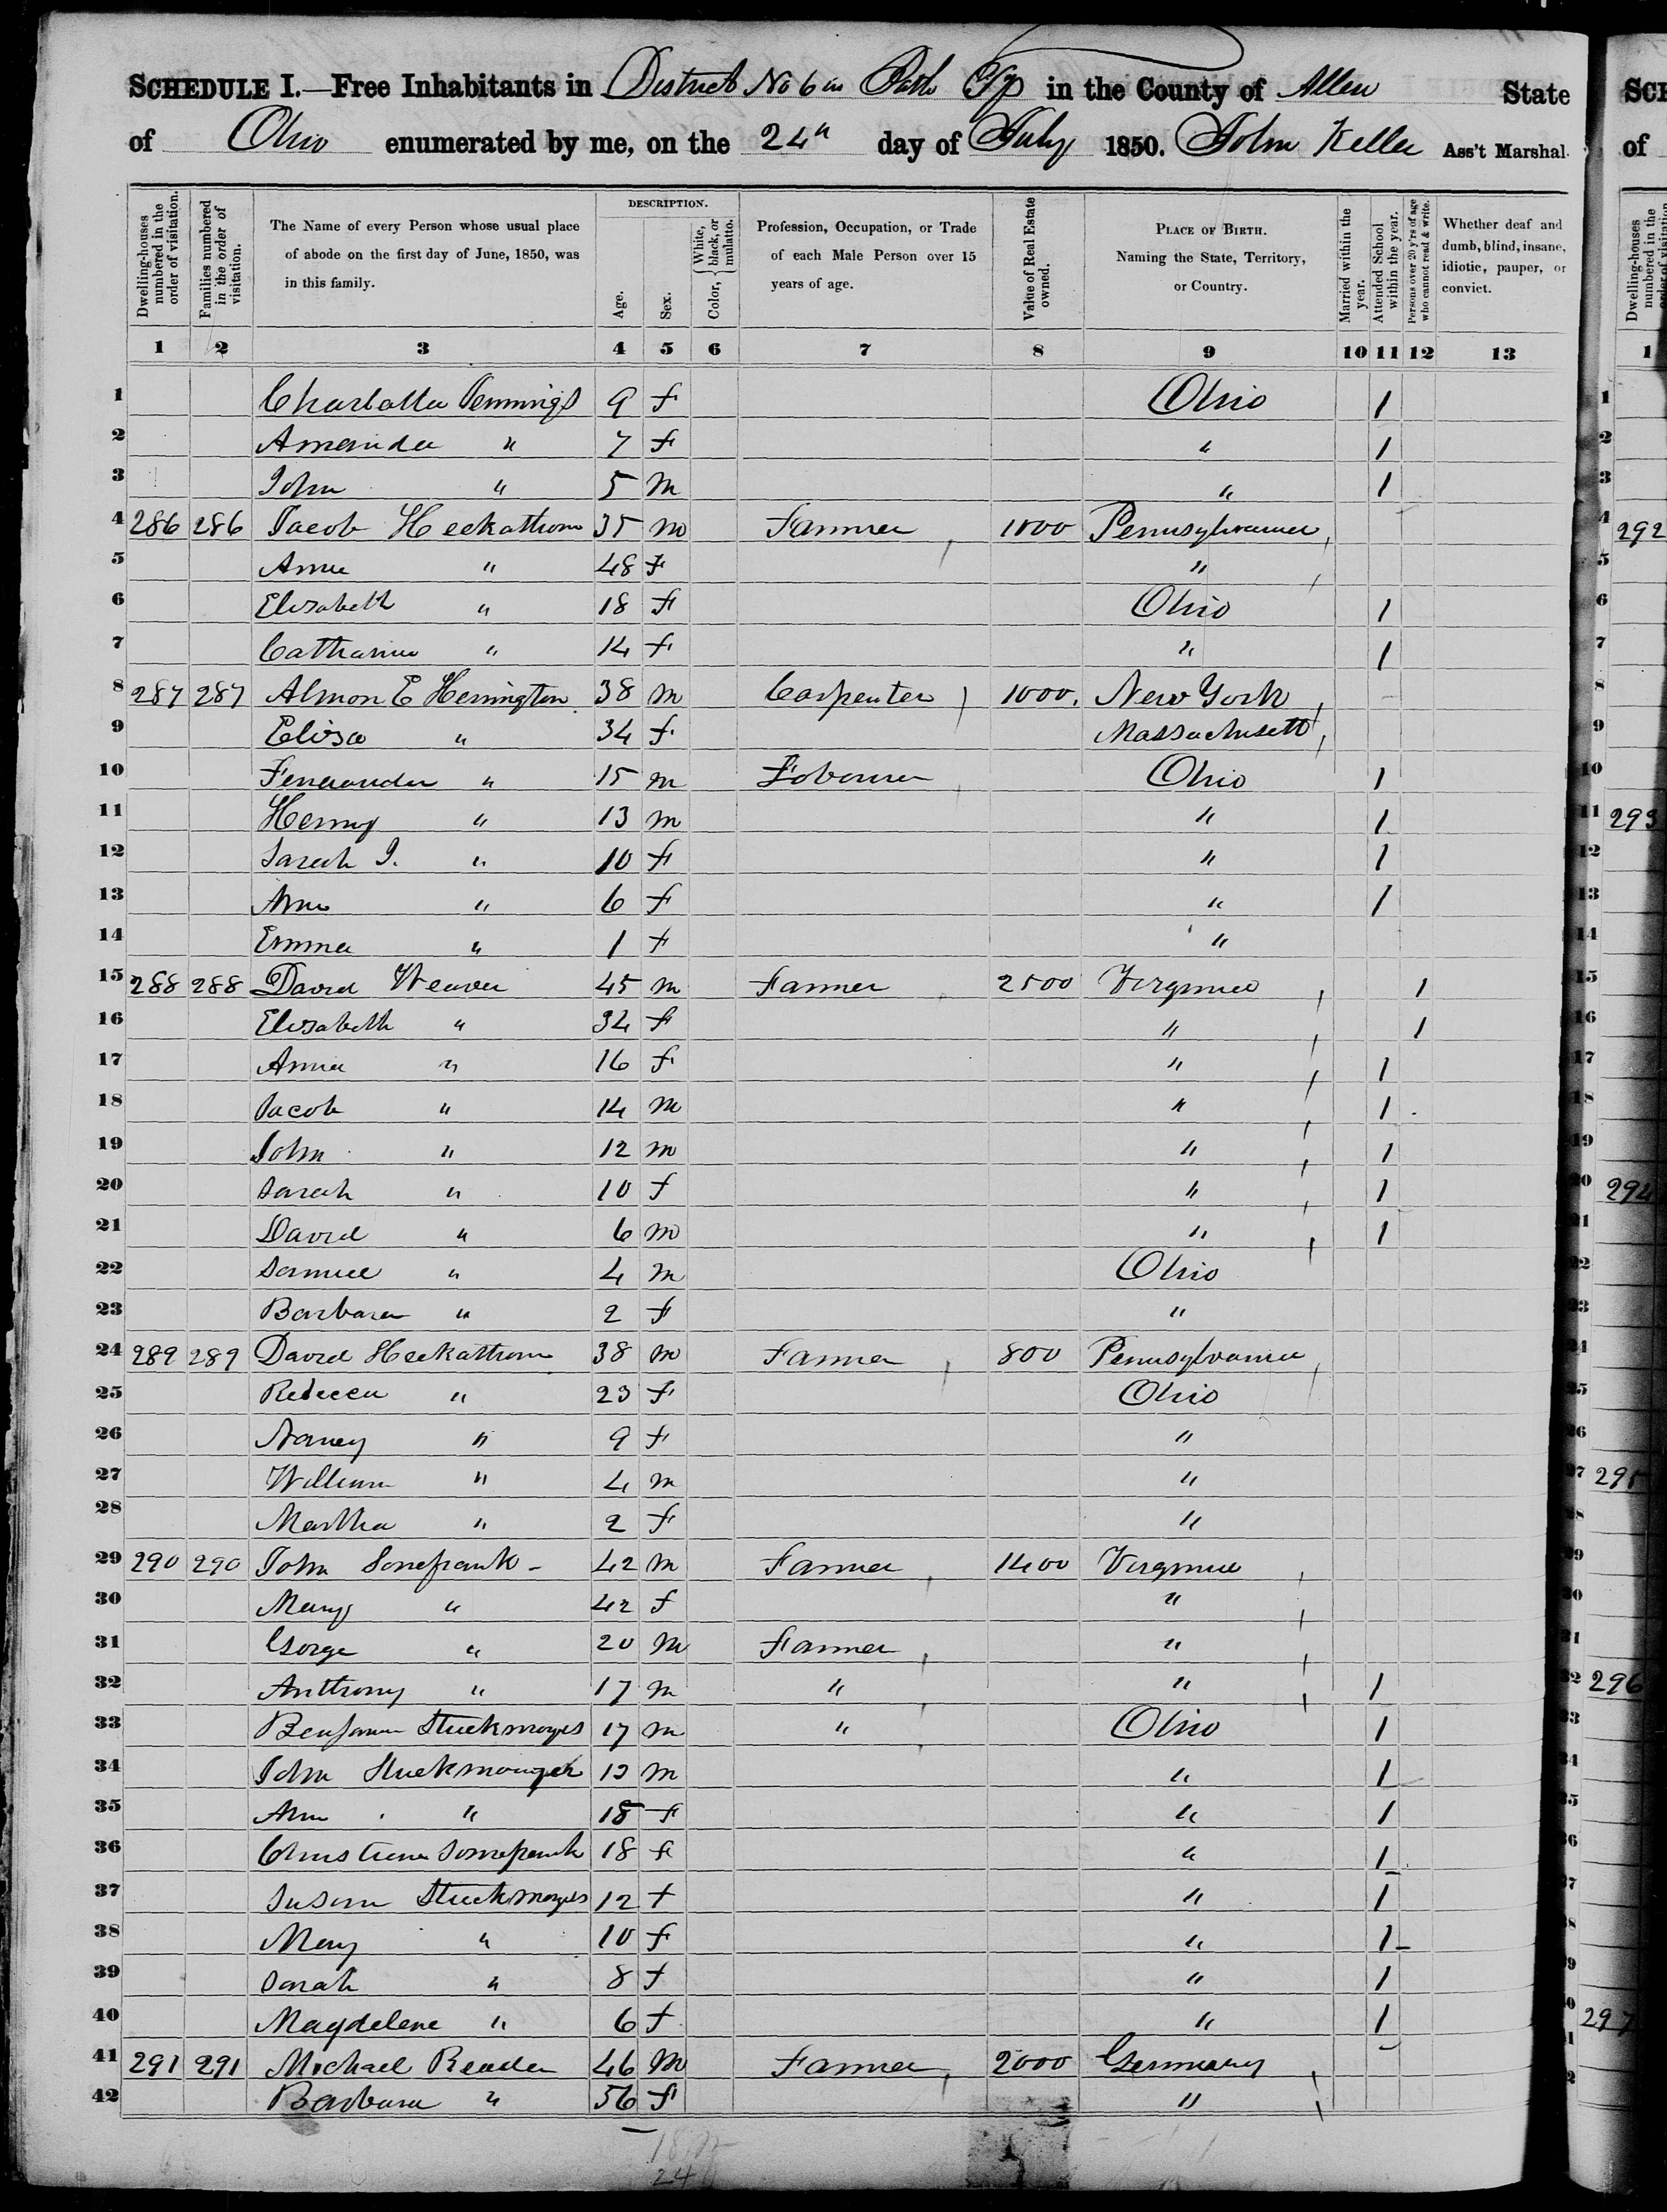 SCHEDULE I.—Free Inhabitants in District No 6 in Bath Tp in the County of Allen State
of Ohio enumerated by me, on the 24th day of July 1850. John Keller Ass't Marshal.
Dwelling-houses numbered in the order of visitation. Families numbered in the order of visitation. The Name of every Person whose usual place of abode on the first day of June, 1850, was in this family. DESCRIPTION. Age. Sex. Color, { White, black, or mulatto. Profession, Occupation, or Trade of each Male Person over 15 years of age. Value of Real Estate owned. PLACE OF BIRTH. Naming the State, Territory, or Country. Married within the year. Attended School within the year. Persons over 20 y'rs of age who cannot read & write. Whether deaf and dumb, blind, insane, idiotic, pauper, or convict.
1 2 3 4 5 6 7 8 9 10 11 12 13
1 Charlotta Jennings 9 f Ohio 1
2 Amanda " 7 f " 1
3 John " 5 m " 1
4 286 286 Jacob Heckathorn 35 m Farmer 1000 Pennsylvania
5 Anna " 48 f "
6 Elizabeth " 18 f Ohio 1
7 Catharine " 14 f " 1
8 287 287 Almon E Herrington 38 m Carpenter 1000. New York
9 Eliza " 34 f Massachusetts
10 " 15 m Labourer Ohio 1
11 Henry " 13 m " 1
12 Sarah J. " 10 f " 1
13 Ann " 6 f " 1
14 Emma " 1 f "
15 288 288 David Weaver 45 m Farmer 2500 Virginia 1
16 Elizabeth " 34 f " 1
17 Anna " 16 f " 1
18 Jacob " 14 m " 1
19 John " 12 m " 1
20 Sarah " 10 f " 1
21 David " 6 m " 1
22 Samuel " 4 m Ohio
23 Barbara " 2 f "
24 289 289 David Heckathorn 38 m Farmer 800 Pennsylvania
25 Rebecca " 23 f Ohio
26 Nancy " 9 f "
27 William " 4 m "
28 Martha " 2 f "
29 290 290 John Sonefrank 42 m Farmer 1400 Virginia
30 Mary " 42 f "
31 George " 20 m Farmer "
32 Anthony " 17 m " " 1
33 Benjamin 17 m " Ohio 1
34 John 13 m " 1
35 Ann " 18 f " 1
36 Christiena Sonefrank 18 f " 1
37 Susann 12 f " 1
38 Mary " 10 f " 1
39 Sarah " 8 f " 1
40 Magdelene " 6 f " 1
41 291 291 Michael Reader 46 m Farmer 2000 Germany
42 Barbara " 56 f "
18 m
24
SCH
of
Dwelling-houses numbered in the order of visitation
1
292
293
294
295
296
297